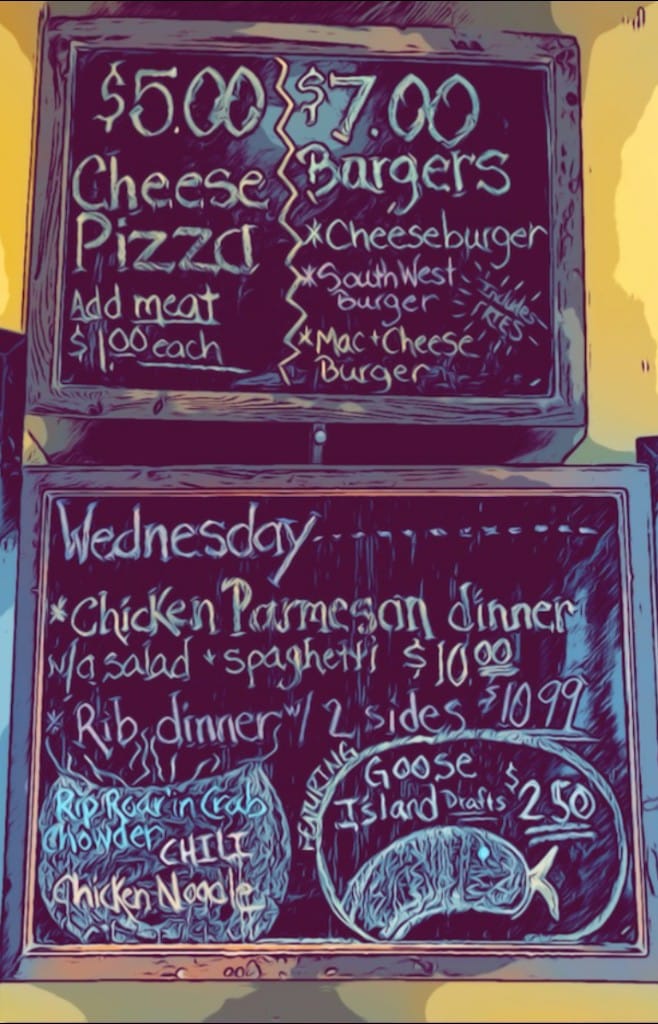 $5.00
Cheese
Pizza
Add meat
$1.00 each
$7.00
Bargers
*Cheeseburger
*SouthWest
Burger
Includes
FRIES
*Mac+Cheese
Burger
Wednesday---------
*Chicken Parmesan dinner
w/a salad + spaghetti $10.00
* Rib dinner w/ 2 sides $10.99
Rip Roar'in Crab
Chowder
CHILI
Chicken Noodle
FEATURING
Goose
Island Drafts $2.50